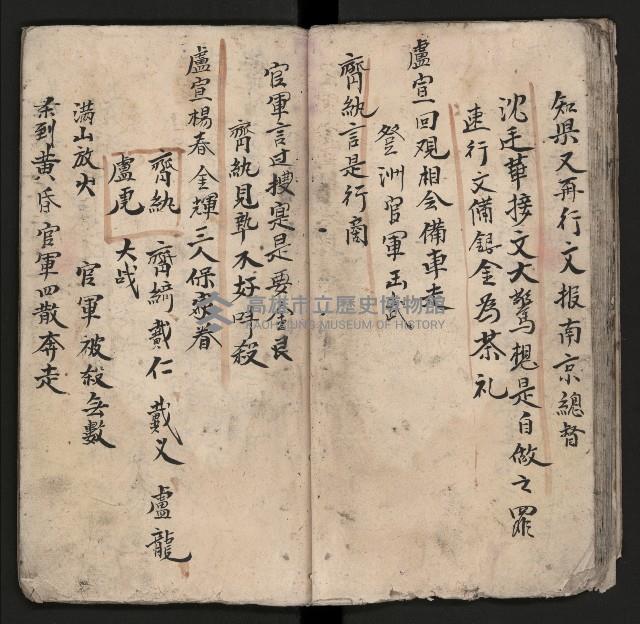 知県又再行文报南京總督
沈廷華接文大驚想是自做之罪
速行文俻銀金為茶礼
盧宣回观相会俻車走
登洲官軍
齊紈言是行商
官軍言过搜寔是要金艮
齊紈見執不好叫殺
盧宣楊春金輝三人保家眷
齊紈 齊綺 戴仁 戴义 盧龍
盧虎 大战
滿山放火 官軍被殺無數
杀到黄昏官軍四散奔走
高雄市立歷史博物館
KAOHSIUNG MUSEUM OF HISTORY